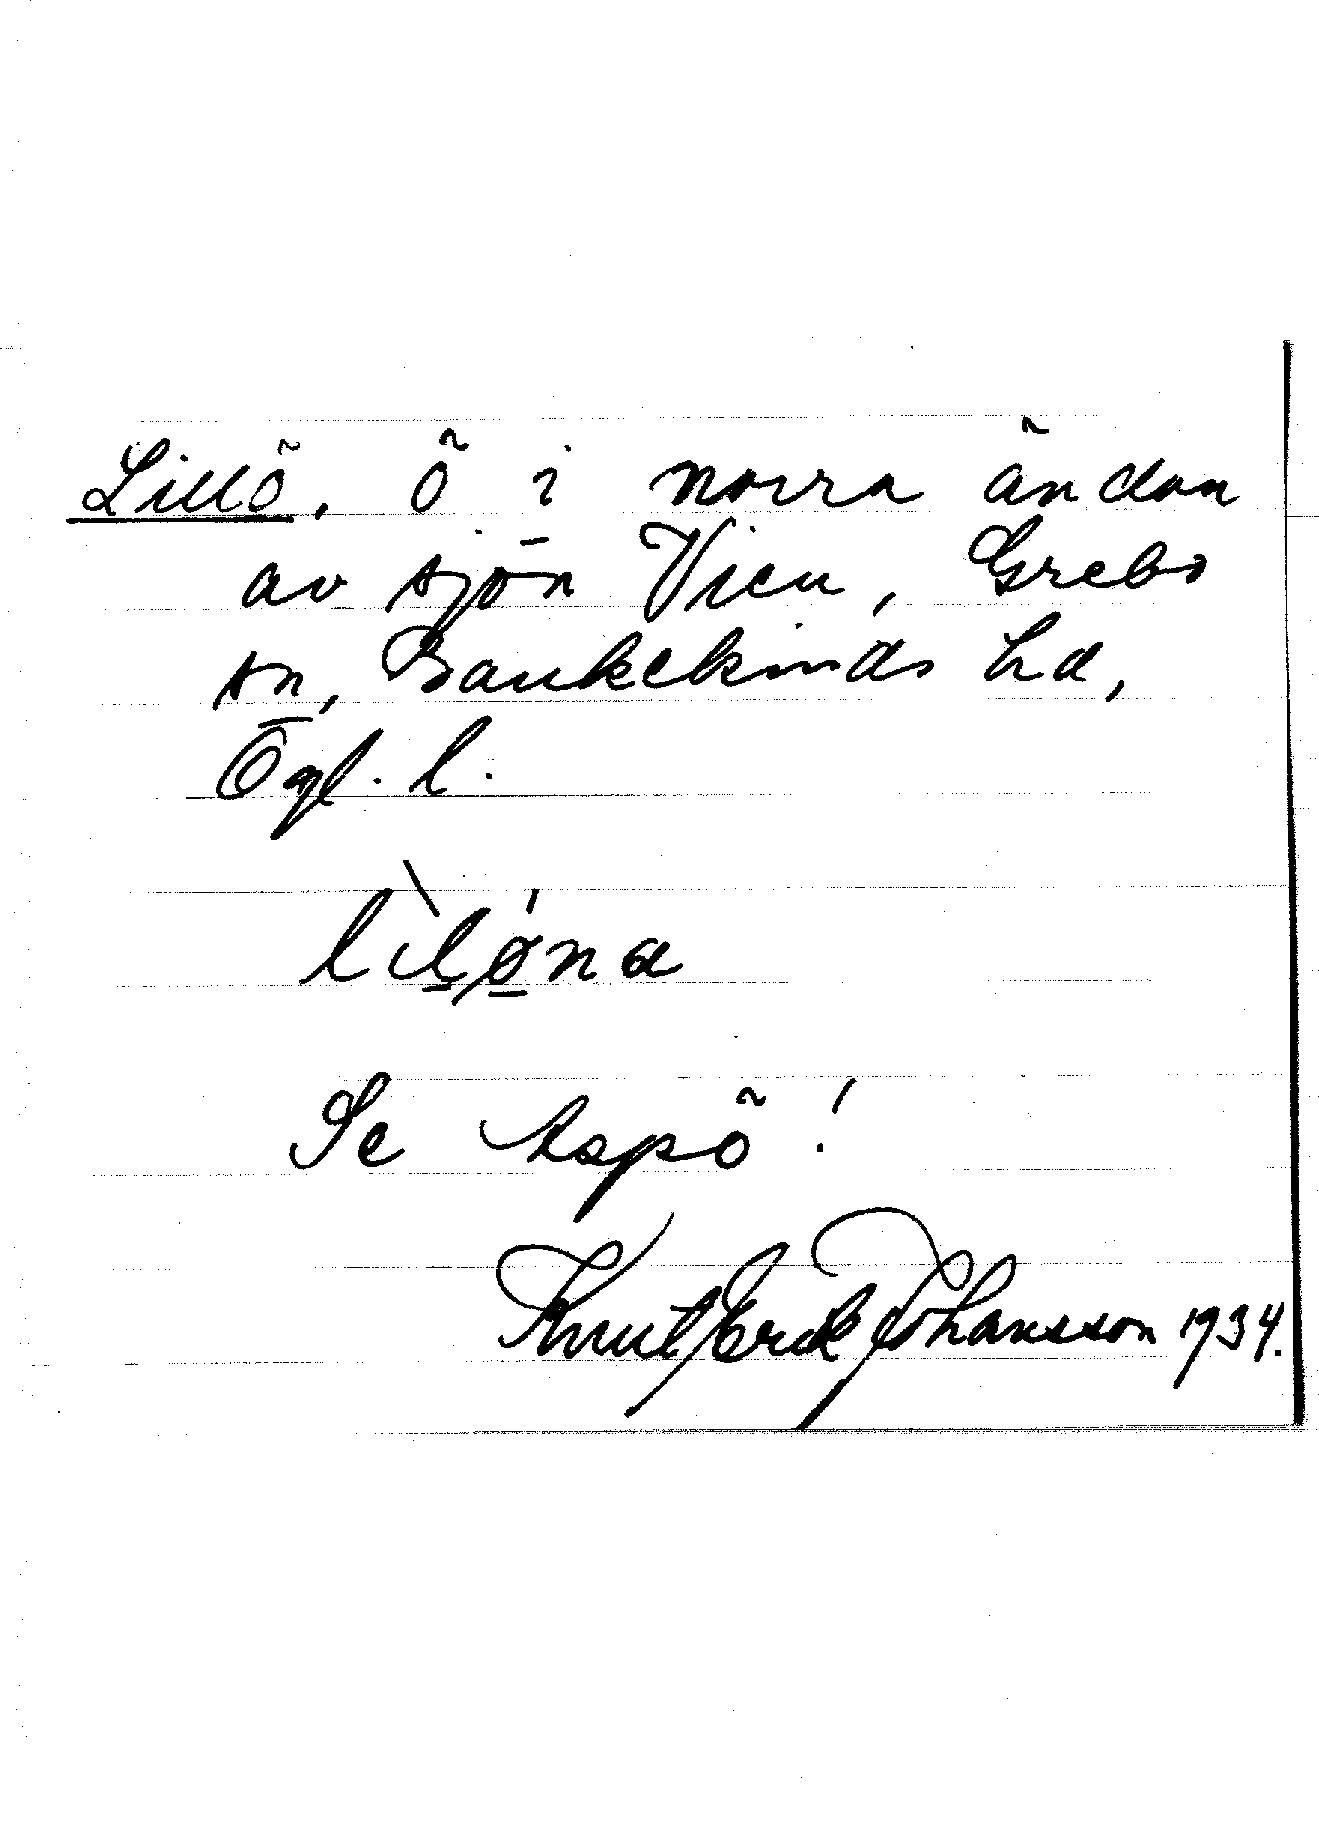 Lillö, ö i norra ändan
av sjön Vien, Grebo
sn, Bankekinds hd,
Ögl. l.
lìlǿna
Se Aspö!
Knut Erik Johansson 1934.